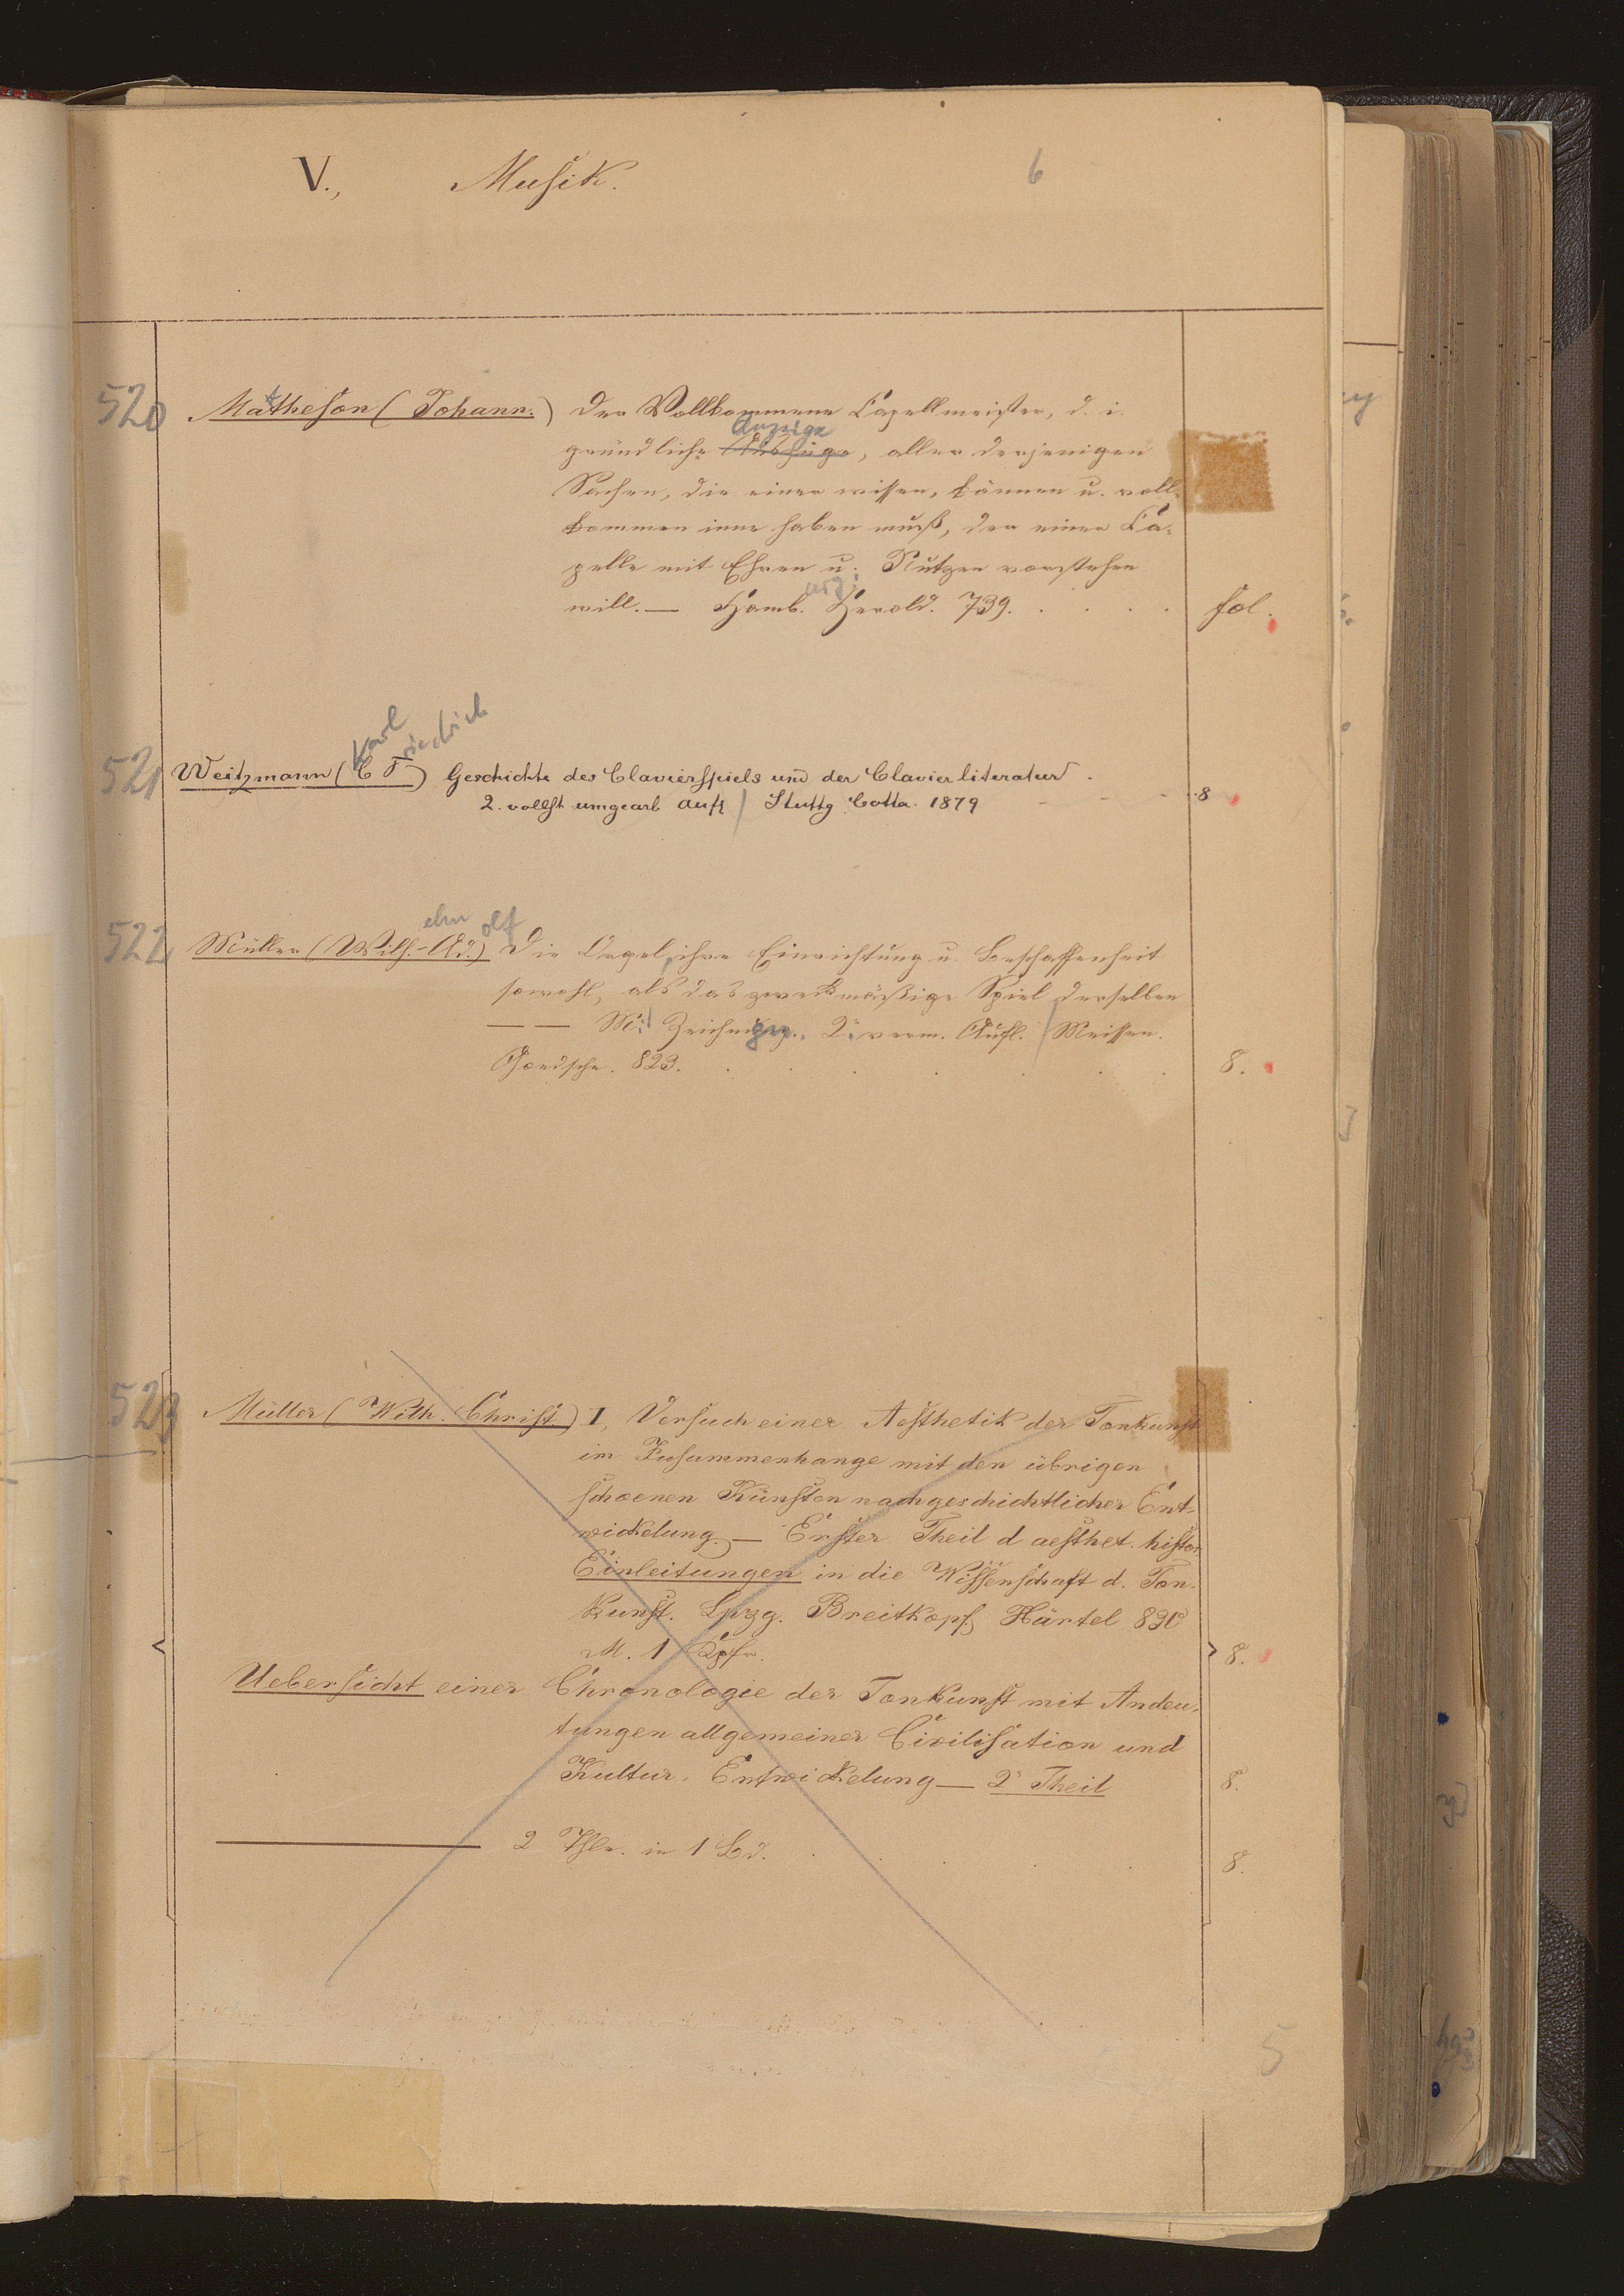 V., Musik. 6
520 Mattheson (Johann.) Der Vollkommene Capellmeister, d. i.
Anzeige
gründliche, aller derjenigen
Sachen, die einer wissen, können u. voll-
kommen inne haben muß, der einer Ca-
pelle mit Ehren u. Nutzen vorstehen
will. — Hamb. Herold. 739. fol.
Karl Friedrich
521 Weitzmann (C F) Geschichte des Clavierspiels und der Clavierliteratur.
2. vollst umgearb Aufl / Stuttg Cotta. 1879 8
elm olf
522 Müller (Wilh.-Ad.) Die Orgel, ihre Einrichtung u. Beschaffenheit
sowohl, als das zweckmäßige Spiel derselben
— — Mit Zeichngn. 2. verm. Aufl. / Meissen.
Goedsche. 823. 8.
523 Müller (Wilh. Christ) I, Versuch einer Aesthetik der Tonkunst
im Zusammenhange mit den übrigen
schoenen Künsten nach geschichtlicher Ent-
wickelung. — Erster Theil d aesthet. histor
Einleitungen in die Wissenschaft d. Ton-
Kunst. Lpzg. Breitkopf, Härtel 830
M. 1 Kpfr. 8.
Uebersicht einer Chronologie der Tonkunst mit Andeu-
tungen allgemeiner Civilisation und
Kultur. Entwickelung — 2r Theil 8.
2 Thle. in 1 Bd. 8.
5